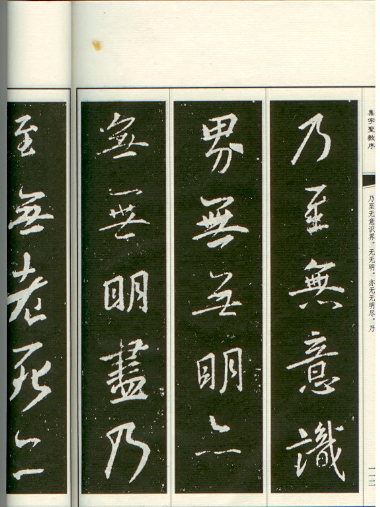 集字聖教序
乃至无意识界。无无明，亦无无明尽，乃
乃至無意識
界無無明亦
無無明盡乃
至無老死亦